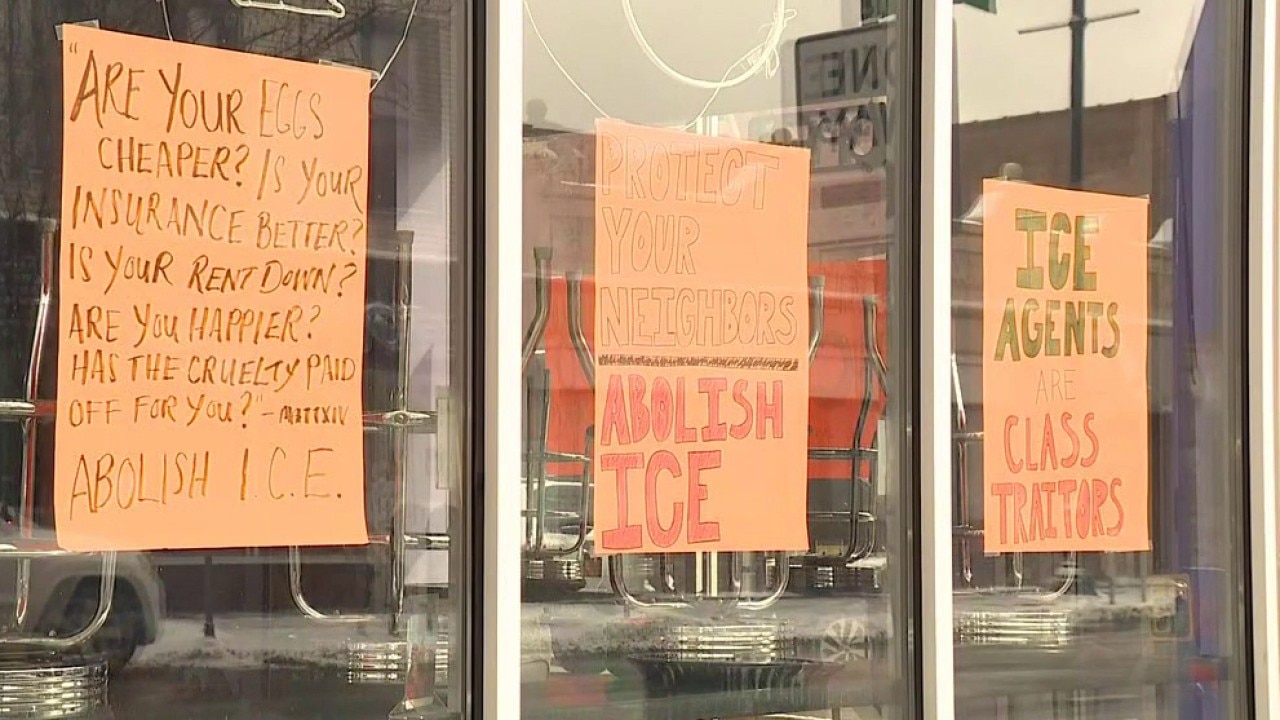 "ARE YOUR EGGS
CHEAPER? IS YOUR
INSURANCE BETTER?
IS YOUR RENT DOWN?
ARE YOU HAPPIER?
HAS THE CRUELTY PAID
OFF FOR YOU?" - MATTXIV
ABOLISH I.C.E.
PROTECT
YOUR
NEIGHBORS
ABOLISH
ICE
ICE
AGENTS
ARE
CLASS
TRAITORS